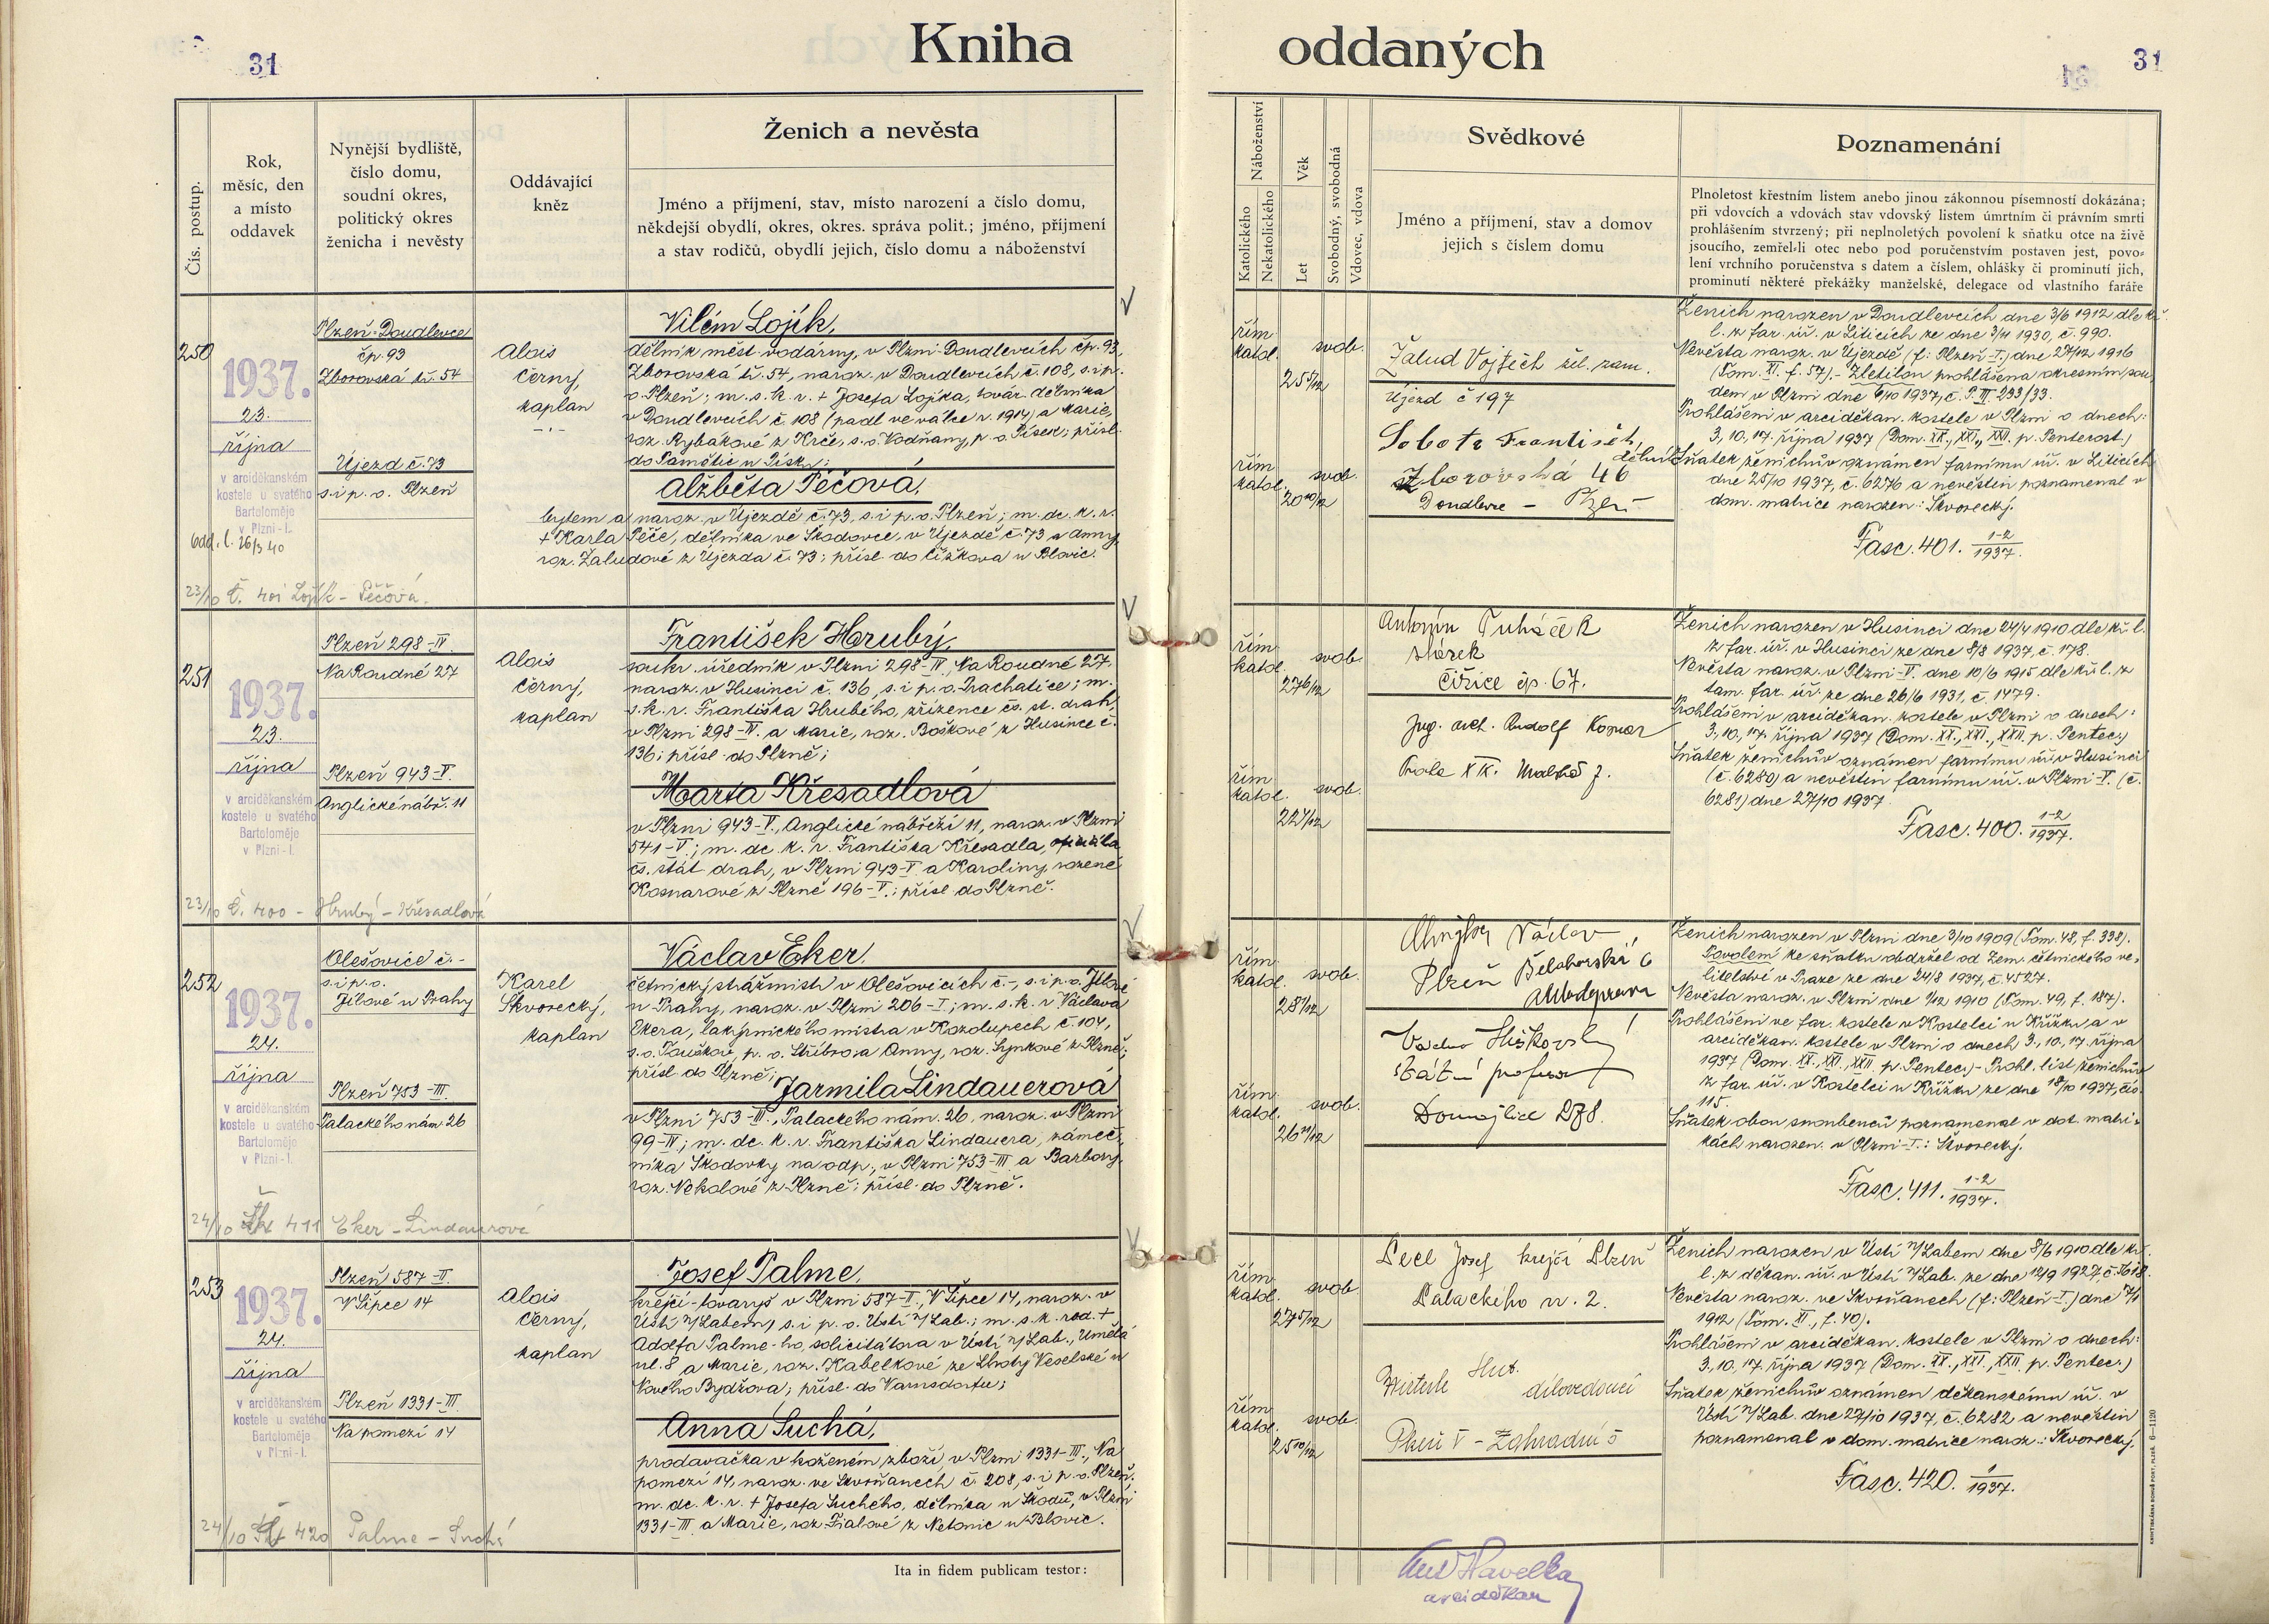 31
Kniha
oddaných
31
Čís. postup.
Rok,
měsíc, den
a místo
oddavek
Nynější bydliště,
číslo domu,
soudní okres,
politický okres
ženicha i nevěsty
Oddávající
kněz
Ženich a nevěsta
Jméno a příjmení, stav, místo narození a číslo domu,
někdejší obydlí, okres, okres. správa polit.; jméno, příjmení
a stav rodičů, obydlí jejich, číslo domu a náboženství
Náboženství
Katolického
Nekatolického
Věk
Let
Svobodný, svobodná
Vdovec, vdova
Svědkové
Jméno a příjmení, stav a domov
jejich s číslem domu
Poznamenání
Plnoletost křestním listem anebo jinou zákonnou písemností dokázána;
při vdovcích a vdovách stav vdovský listem úmrtním či právním smrti
prohlášením stvrzený; při neplnoletých povolení k sňatku otce na živě
jsoucího, zemřel-li otec nebo pod poručenstvím postaven jest, povo-
lení vrchního poručenstva s datem a číslem, ohlášky či prominutí jich,
prominutí některé překážky manželské, delegace od vlastního faráře
250
1937.
23.
října
v arciděkanském
kostele u svatého
Bartoloměje
v Plzni-I.
odd. l. 26/3 40
Plzeň-Doudlevce
čp. 93
Zborovská tř. 54
Újezd č. 73
s. i p. o. Plzeň
Alois
Černý,
kaplan
Vilém Lojík,
dělník měst. vodárny, v Plzni-Doudlevcích čp. 93,
Zborovská tř. 54, naroz. v Doudlevcích č. 108, s. i p.
o. Plzeň; m. s. k. r. + Josefa Lojíka, továr. dělníka
v Doudlevcích č. 108 (padl ve válce r. 1914) a Marie,
roz. Rybákové z Krče, s. o. Vodňany, p. o. Písek; přísl.
do Pamětic u Písku;
Alžběta Péčová,
bytem a naroz. v Újezdě č. 73, s. i p. o. Plzeň; m. dc. k. r.
+ Karla Péče, dělníka ve Škodovce, v Újezdě č. 73 a Anny,
roz. Žaludové z Újezda č. 73; přísl. do Čížkova u Blovic.
23/10 Č. 401 Lojík - Péčová.
řím.
katol.
svob.
25 5/12
řím.
katol.
svob.
20 10/12
Žalud Vojtěch žel. zam.
Újezd č 197
Sobota František,
dělník
Zborovská 46
Doudlevce - Plzeň
Ženich narozen v Doudlevcích dne 3/6 1912 dle kř.
l. z far. úř. v Liticích ze dne 3/11 1930, č. 990.
Nevěsta naroz. v Újezdě (f: Plzeň-I.) dne 27/12 1916
(Tom. XI. f. 57). - Zletilou prohlášena okresním sou-
dem v Plzni dne 6/10 1937, č. P. III 233/33.
Prohlášeni v arciděkan. kostele v Plzni o dnech:
3., 10., 17. října 1937 (Dom. XX., XXI., XXII. p. Pentecost.)
Sňatek ženichův oznámen farnímu úř. v Liticích
dne 25/10 1937, č. 6276 a nevěstin poznamenal v
dom. matrice narozen: Škvorecký.
Fasc. 401. 1-2/1937.
251
1937.
23.
října
v arciděkanském
kostele u svatého
Bartoloměje
v Plzni-I.
Plzeň 298-IV.
Na Roudné 27
Plzeň 943-V.
Anglické nábř. 11
Alois
Černý,
kaplan
František Hrubý,
soukr. úředník v Plzni 298-IV, Na Roudné 27,
naroz. v Husinci č. 136, s. i p. o. Prachatice; m.
s. k. r. Františka Hrubého, zřízence čs. st. drah,
v Plzni 298-IV. a Marie, roz. Boškové z Husince č.
136; přísl. do Plzně;
Marta Křesadlová
v Plzni 943-V., Anglické nábřeží 11, naroz. v Plzni
541-V; m. dc. k. r. Františka Křesadla,
čs. stát. drah, v Plzni 943-V a Karoliny, rozené
Kosnarové z Plzně 196-V.; přísl. do Plzně.
23/10 Č. 400 - Hrubý - Křesadlová
řím.
katol.
svob.
27 6/12
řím.
katol.
svob.
22 4/12
Antonín
Čižice čp. 67.
Rudolf Kosnar
Praha XIX.
Ženich narozen v Husinci dne 24/4 1910 dle kř. l.
z far. úř. v Husinci ze dne 8/8 1937, č. 178.
Nevěsta naroz. v Plzni-V. dne 10/6 1915 dle kř. l. z
tam. far. úř. ze dne 26/6 1931, č. 1479.
Prohlášeni v arciděkan. kostele v Plzni o dnech:
3., 10., 17. října 1937 (Dom. XX., XXI., XXII. p. Pentec.)
Sňatek ženichův oznámen farnímu úř. v Husinci
(č. 6280) a nevěstin farnímu úř. v Plzni-V. (č.
6281) dne 27/10 1937.
Fasc. 400. 1-2/1937.
252
1937.
24.
října
v arciděkanském
kostele u svatého
Bartoloměje
v Plzni-I.
Olešovice č. -
s. i p. o.
Jílové u Prahy
Plzeň 753-III
Palackého nám. 26
Karel
Škvorecký,
kaplan
Václav Eker,
četnický strážmistr v Olešovicích č. -, s. i p. o. Jílové
u Prahy, naroz. v Plzni 206-I; m. s. k. r. Václava
Ekera, lakýrnického mistra v Kozolupech č. 104,
s. o. Touškov, p. o. Stříbro, a Anny, roz. Synkové z Plzně;
přísl. do Plzně;
Jarmila Lindauerová
v Plzni 753-III., Palackého nám. 26, naroz. v Plzni
99-IV; m. dc. k. r. Františka Lindauera, zámeč-
níka Škodovky na odp., v Plzni 753-III a Barbory,
roz. Nekolové z Plzně; přísl. do Plzně.
24/10 411 Eker - Lindaurová
řím.
katol.
svob.
28 /12
řím.
katol.
svob.
26 /12
Václav
Plzeň Bělohorská 6
státní profesor
Domažlice 278.
Ženich narozen v Plzni dne 3/10 1909 (Tom. 48, f. 338).
Povolení ke sňatku obdržel od Zem. četnického ve-
litelství v Praze ze dne 24/8 1937, č. 4527.
Nevěsta naroz. v Plzni dne 1/12 1910 (Tom. 49, f. 187).
Prohlášeni ve far. kostele v Kostelci u Křížku a v
arciděkan. kostele v Plzni o dnech 3., 10., 17. října
1937 (Dom. XX., XXI., XXII. p. Pentec.) - Prohl. list ženichův
z far. úř. v Kostelci u Křížku ze dne 18/10 1937, čís.
115.
Sňatek obou snoubenců poznamenal v dot. matri-
kách narozen. v Plzni-I.: Škvorecký.
Fasc. 411. 1-2/1937.
253
1937.
24.
října
v arciděkanském
kostele u svatého
Bartoloměje
v Plzni-I.
Plzeň 587-II.
V Šipce 14
Plzeň 1331-III.
Na pomezí 14
Alois
Černý,
kaplan
Josef Palme,
krejčí-tovaryš v Plzni 587-II., V Šipce 14, naroz. v
Ústí n/Labem, s. i p. o. Ústí n/Lab.; m. s. k. rod. +
Adolfa Palme-ho, solicitátora v Ústí n/Lab., Umělá
ul. 8 a Marie, roz. Kabelkové ze Lhoty Veselské u
Nového Bydžova; přísl. do Varnsdorfu;
Anna Suchá,
prodavačka v koženém zboží, v Plzni 1331-III., Na
pomezí 14, naroz. ve Skvrňanech č. 208, s. i p. o. Plzeň;
m. dc. k. r. + Josefa Suchého, dělníka u Škodů, v Plzni
1331-III a Marie, roz. Fialové z Netonic u Blovic.
24/10 420 Palme - Suchá
řím.
katol.
svob.
27 5/12
řím.
katol.
svob.
25 10/12
Pecl Josef krejčí Plzeň
Palackého nr. 2.
dílovedoucí
Plzeň V - Zahradní 5
Ženich narozen v Ústí n/Labem dne 8/6 1910 dle kř.
l. z děkan. úř. v Ústí n/Lab. ze dne 12/9 1927, č. 3618.
Nevěsta naroz. ve Skvrňanech (f: Plzeň-I.) dne 7/1
1912 (Tom. XI., f. 40).
Prohlášeni v arciděkan. kostele v Plzni o dnech:
3., 10., 17. října 1937 (Dom. XX., XXI., XXII. p. Pentec.)
Sňatek ženichův oznámen děkanskému úř. v
Ústí n/Lab. dne 27/10 1937, č. 6282 a nevěstin
poznamenal v dom. matrice naroz.: Škvorecký.
Fasc. 420. 1/1937.
Ita in fidem publicam testor:
Ant. Havelka
arciděkan